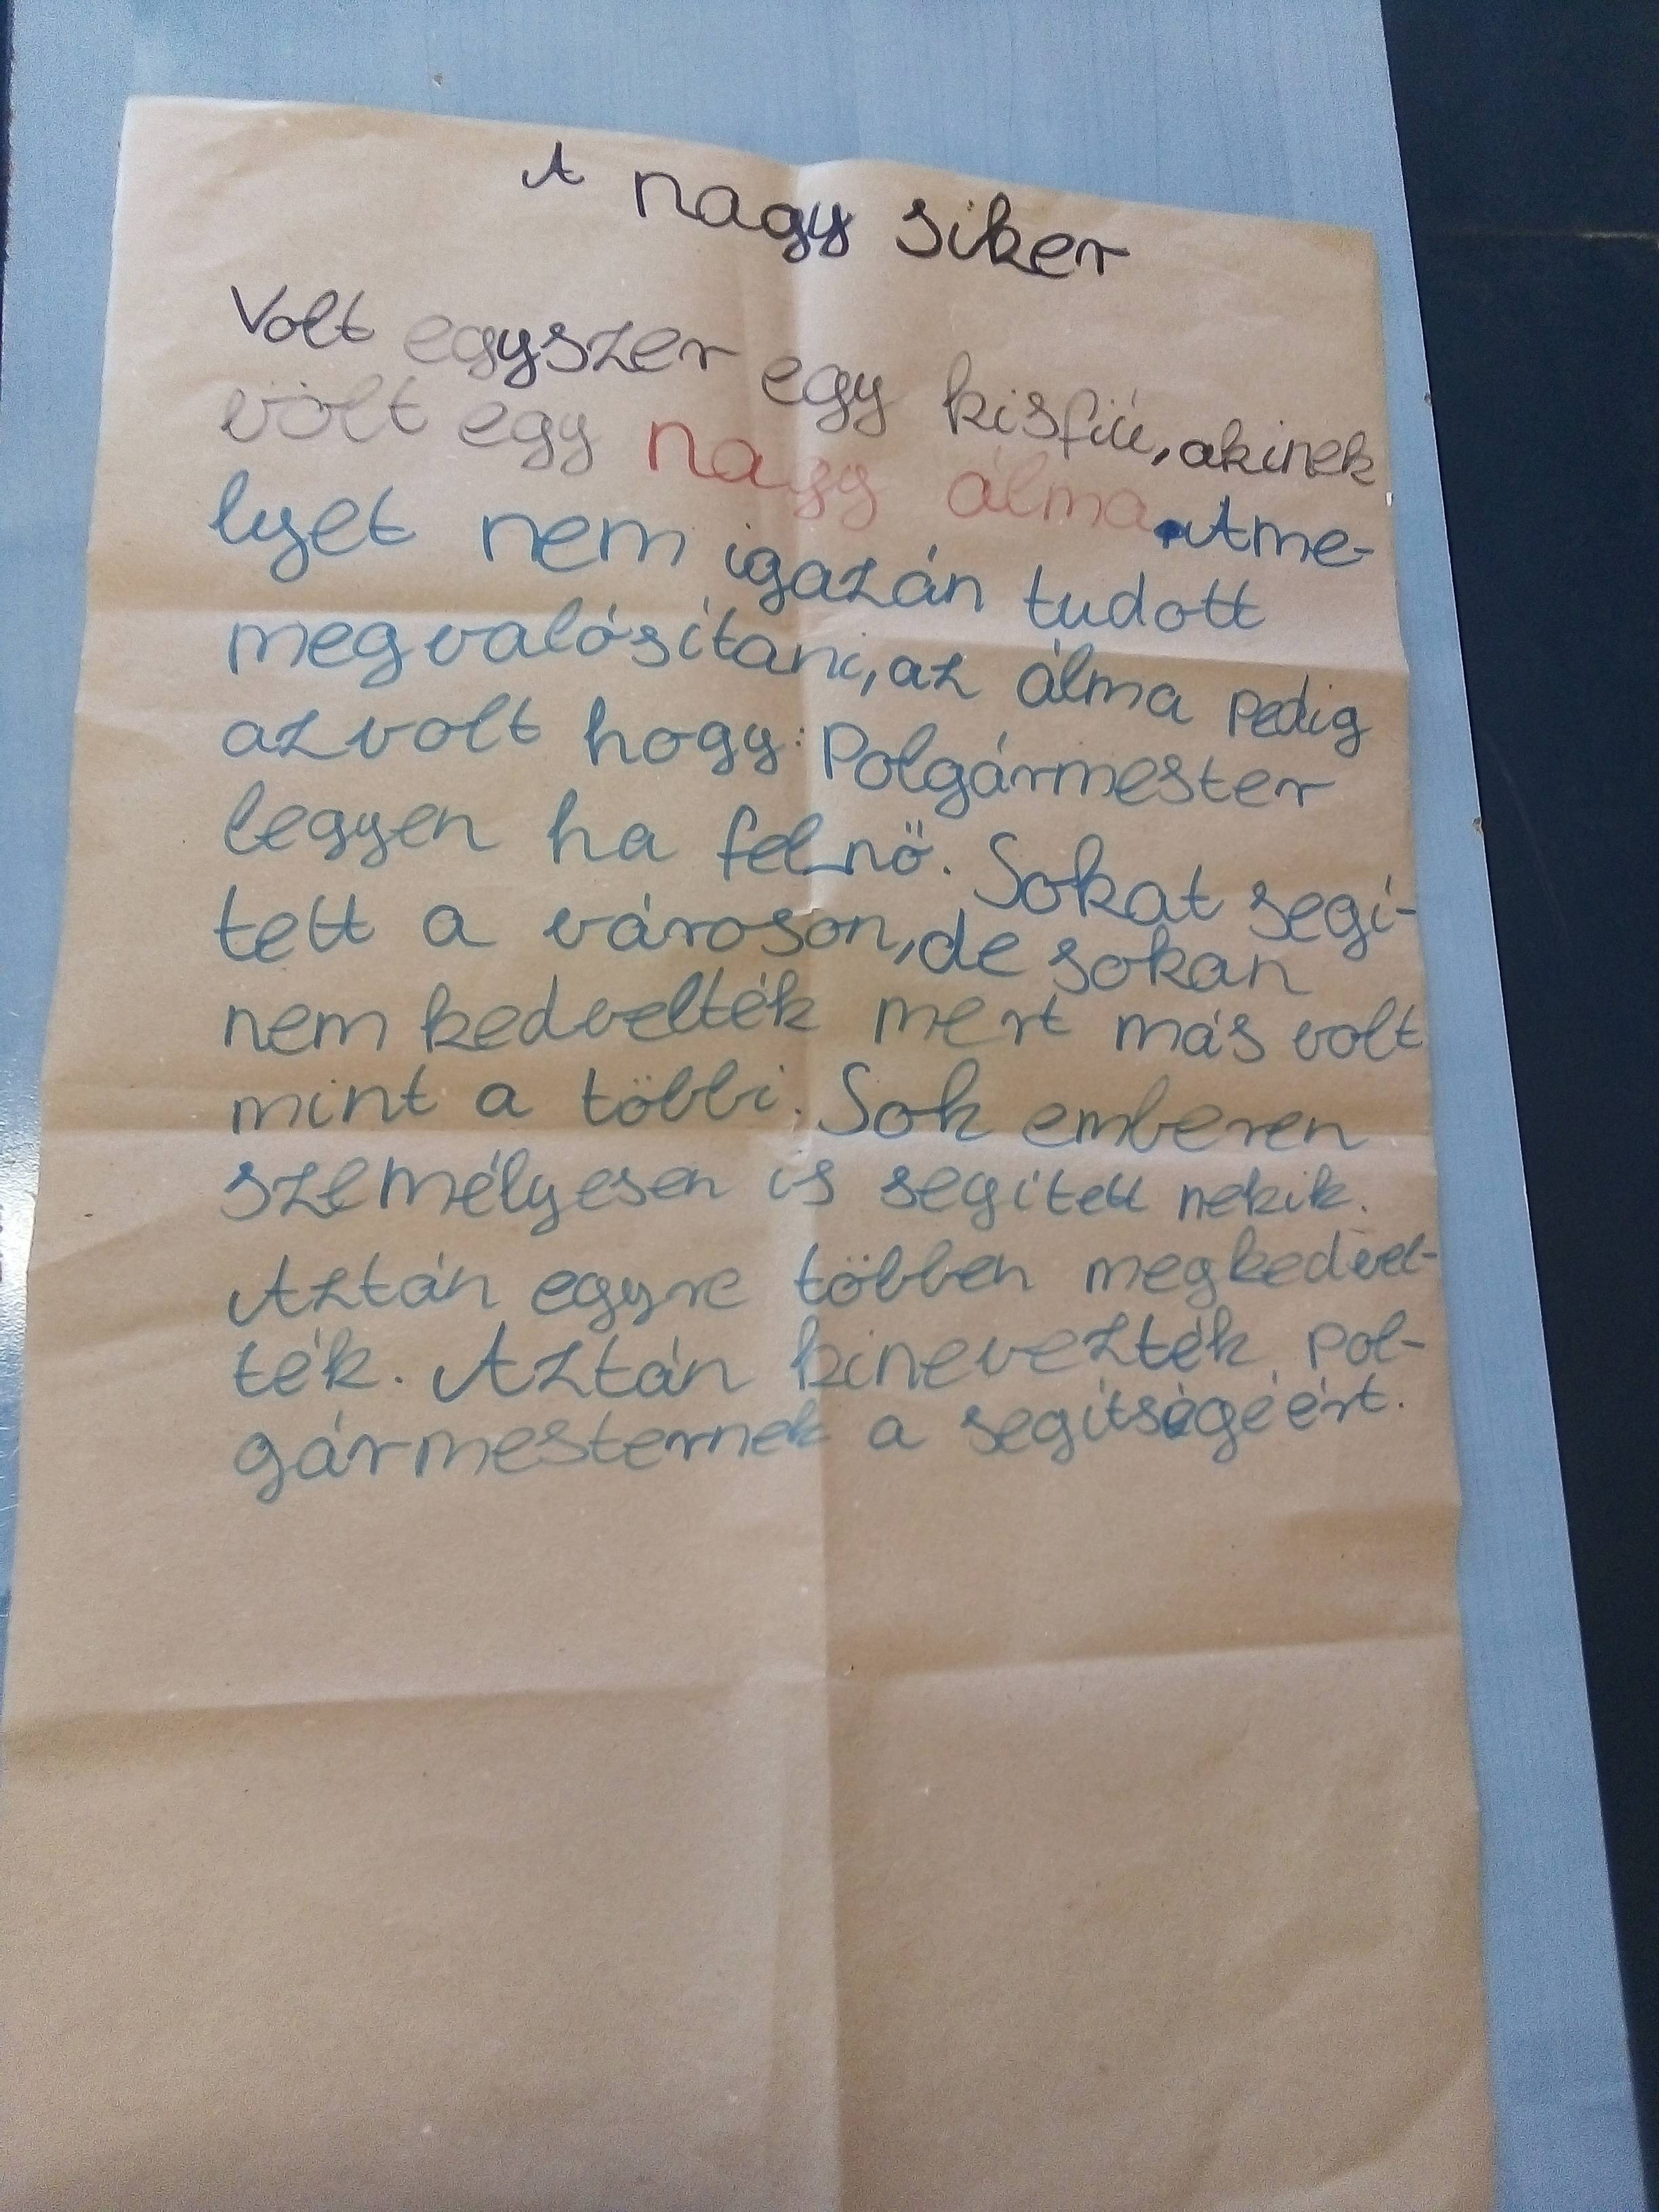 A nagy siker
Volt egyszer egy kisfiú, akinek
volt egy nagy álma. Ame-
lyet nem igazán tudott
megvalósítani, az álma pedig
az volt hogy: Polgármester
legyen ha felnő. Sokat segí-
tett a városon, de sokan
nem kedvelték mert más volt
mint a többi. Sok emberen
személyesen is segített nekik.
Aztán egyre többen megkedvel-
ték. Aztán kinevezték pol-
gármesternek a segítségéért.